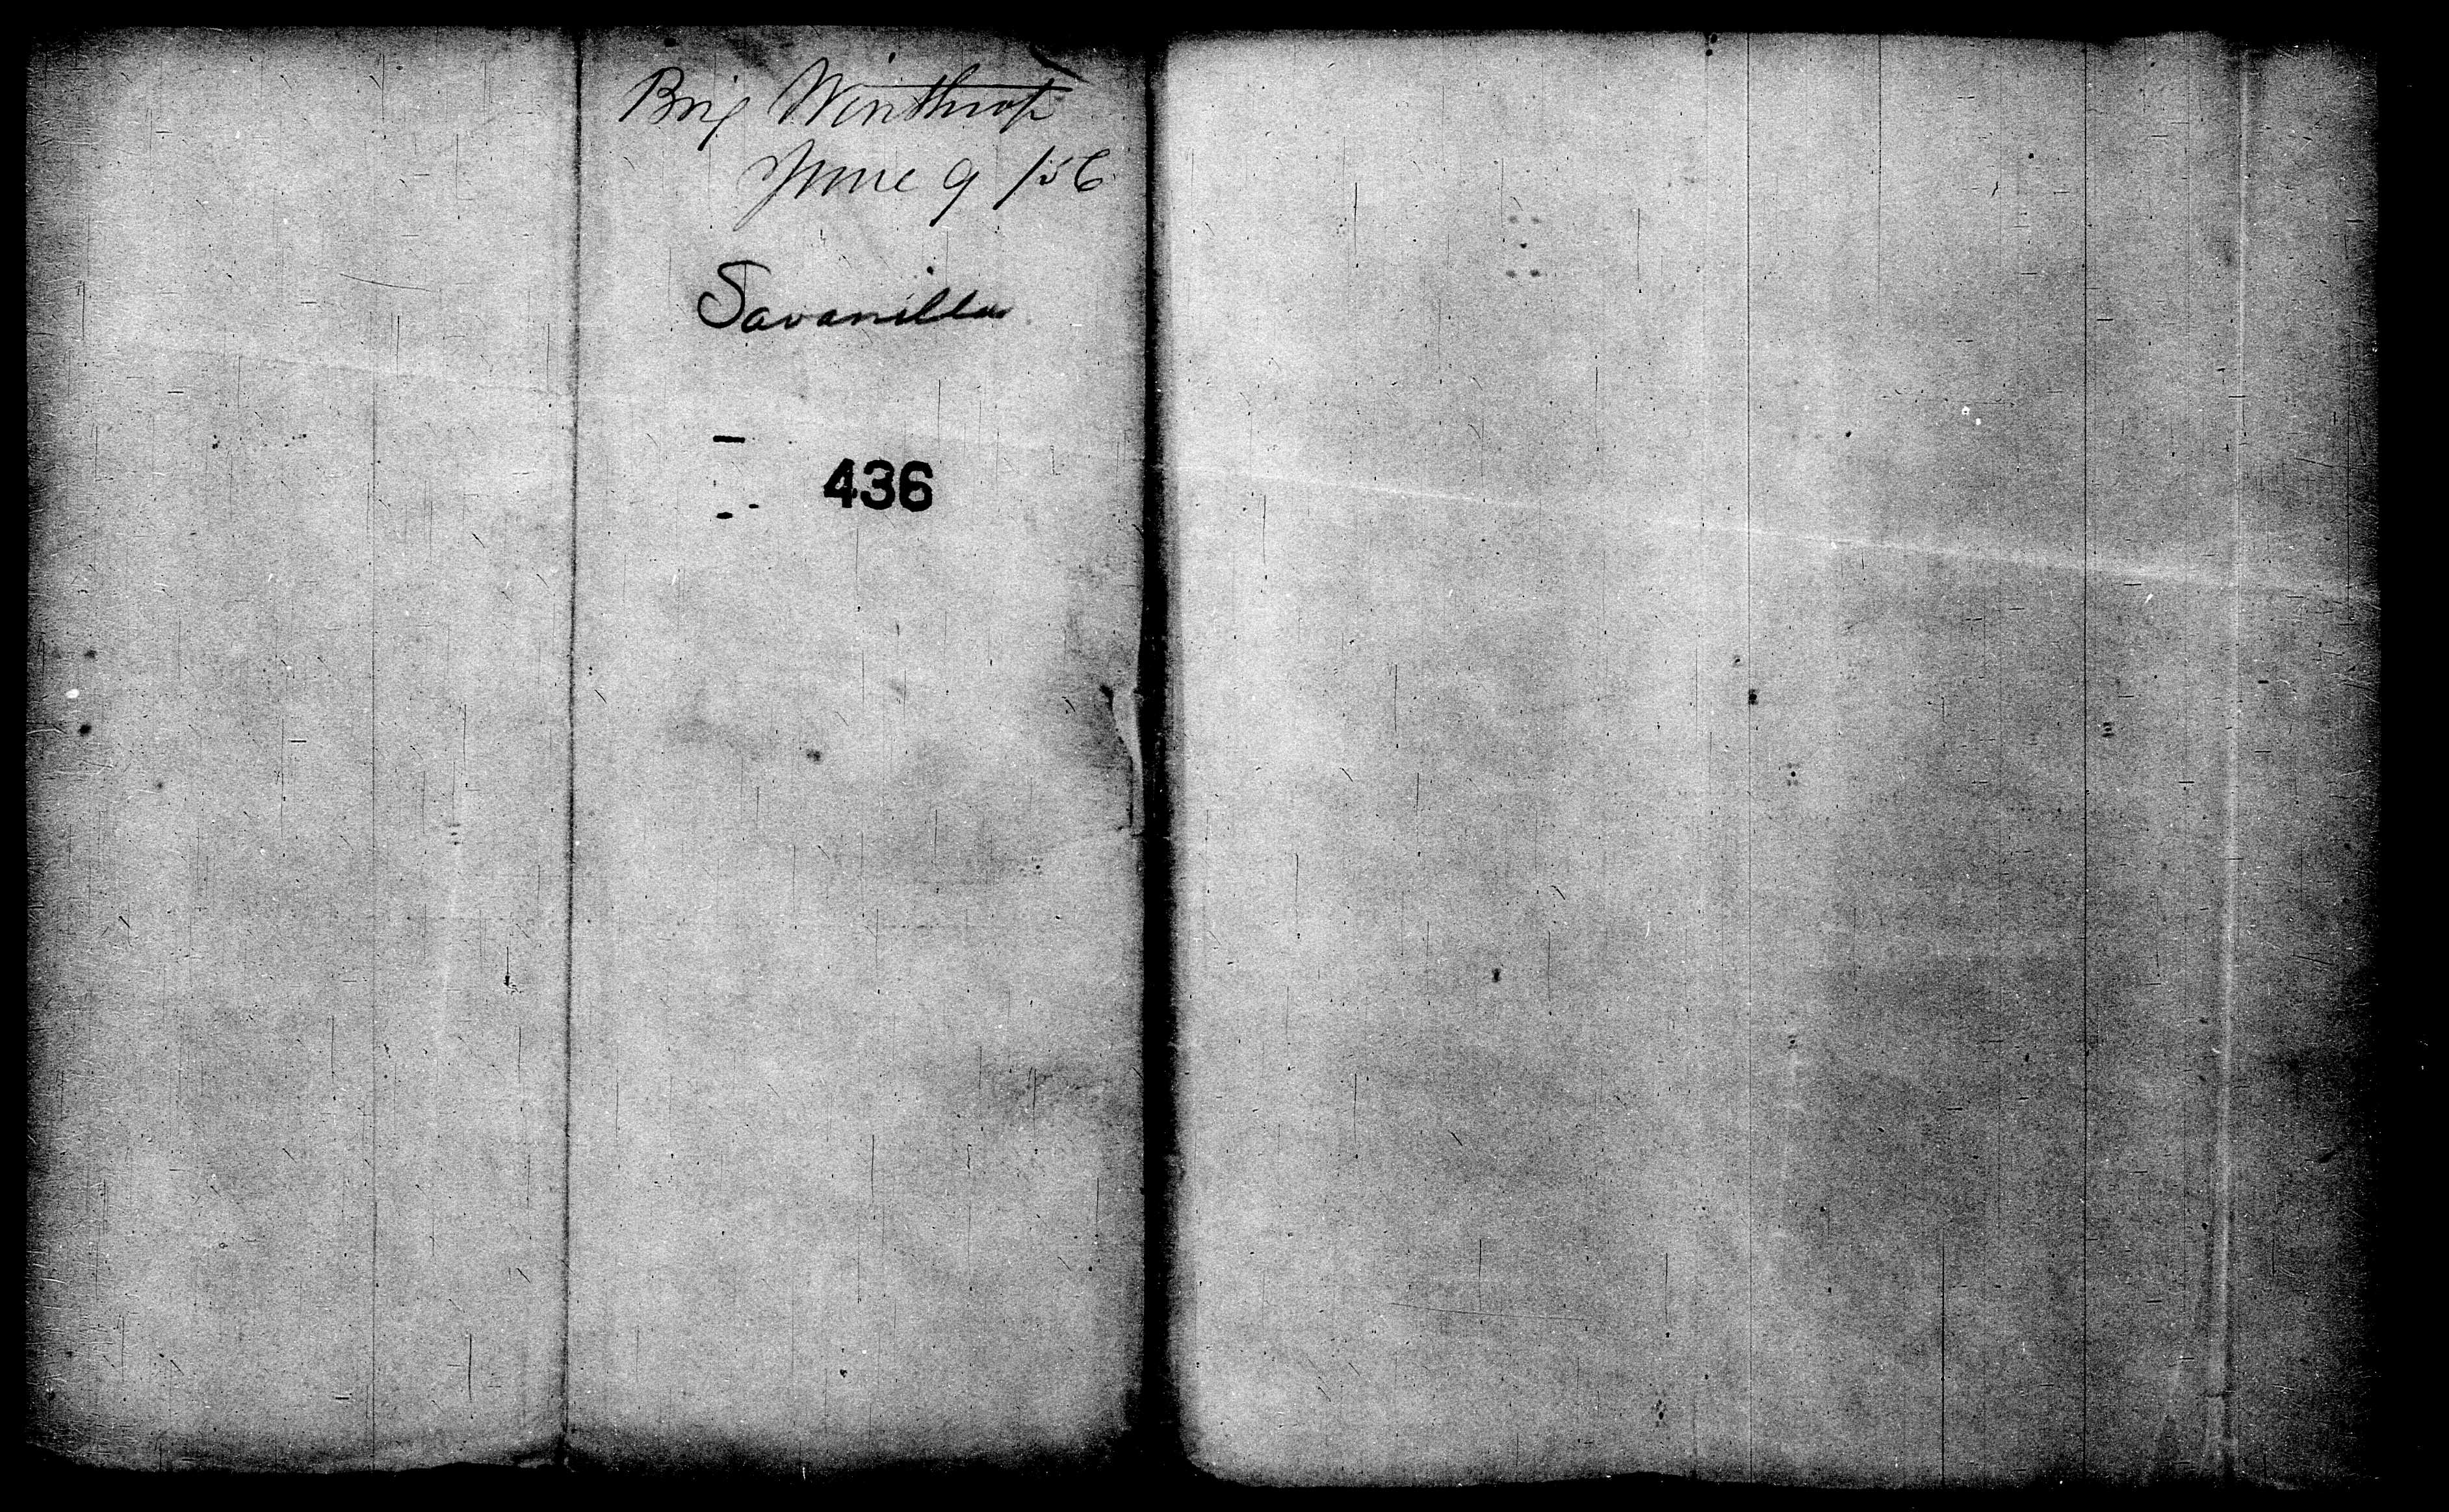 Brig Winthrop
June 9/56
Savanilla
436